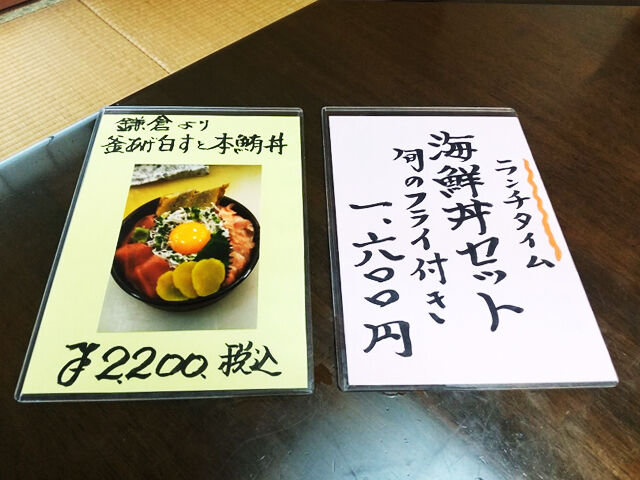 鎌倉より
釜あげ白すと本鮪丼
¥2,200.税込
ランチタイム
海鮮丼セット
旬のフライ付き
一、六〇〇円